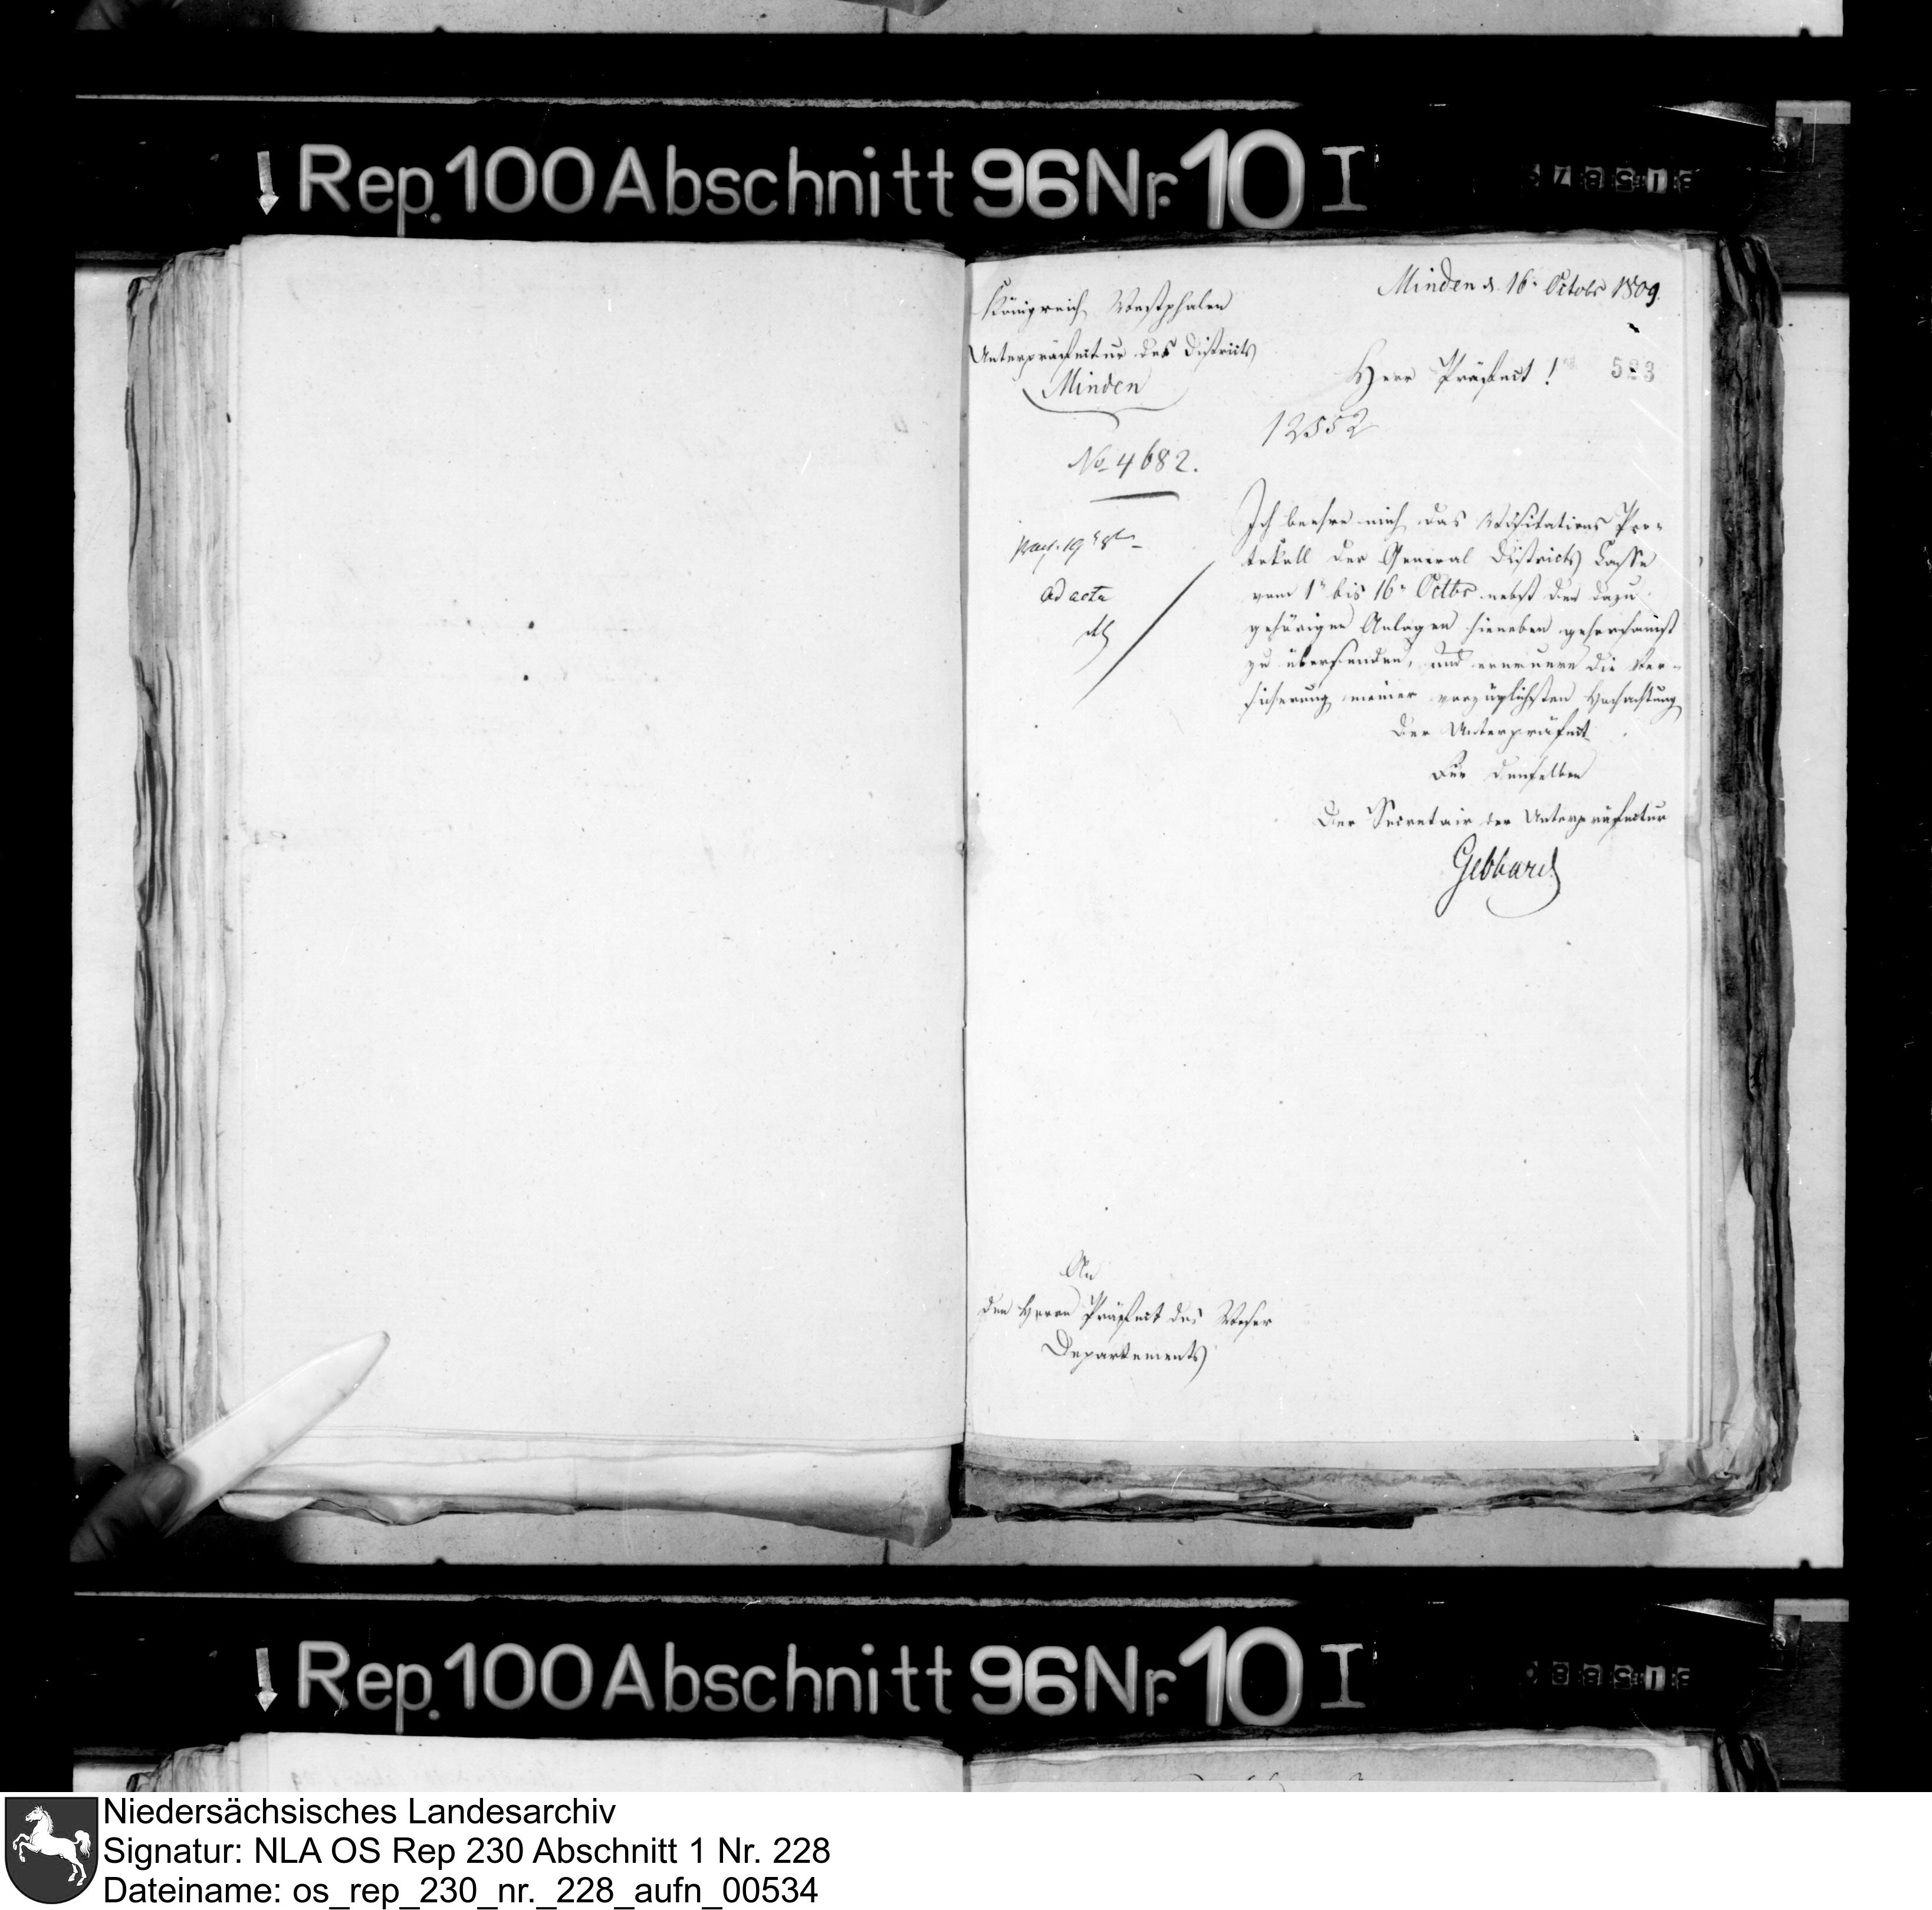 Rep. 100 Abschnitt 96 Nr. 10 I
Königreich Westphalen
Unterpräfectur des Districts
Minden
No 4682.
ad acta
Minden d. 16n Octobr 1809.
Herr Präfect!
523
12552
Ich beehre mich das Visitations Pro-
tokoll der General Districts Casse
vom 1n bis 16n Octbr nebst den dazu
gehörigen Anlagen hieneben gehorsamst
zu übersenden, und erneuere die Ver-
sicherung meiner vorzüglichsten Hochachtung
Der Unterpräfect
Für denselben
Der Secretair der Unterpräfectur
Gebhard
An
den Herrn Präfect des Weser
Departements
Rep. 100 Abschnitt 96 Nr. 10 I
Niedersächsisches Landesarchiv
Signatur: NLA OS Rep 230 Abschnitt 1 Nr. 228
Dateiname: os_rep_230_nr._228_aufn_00534